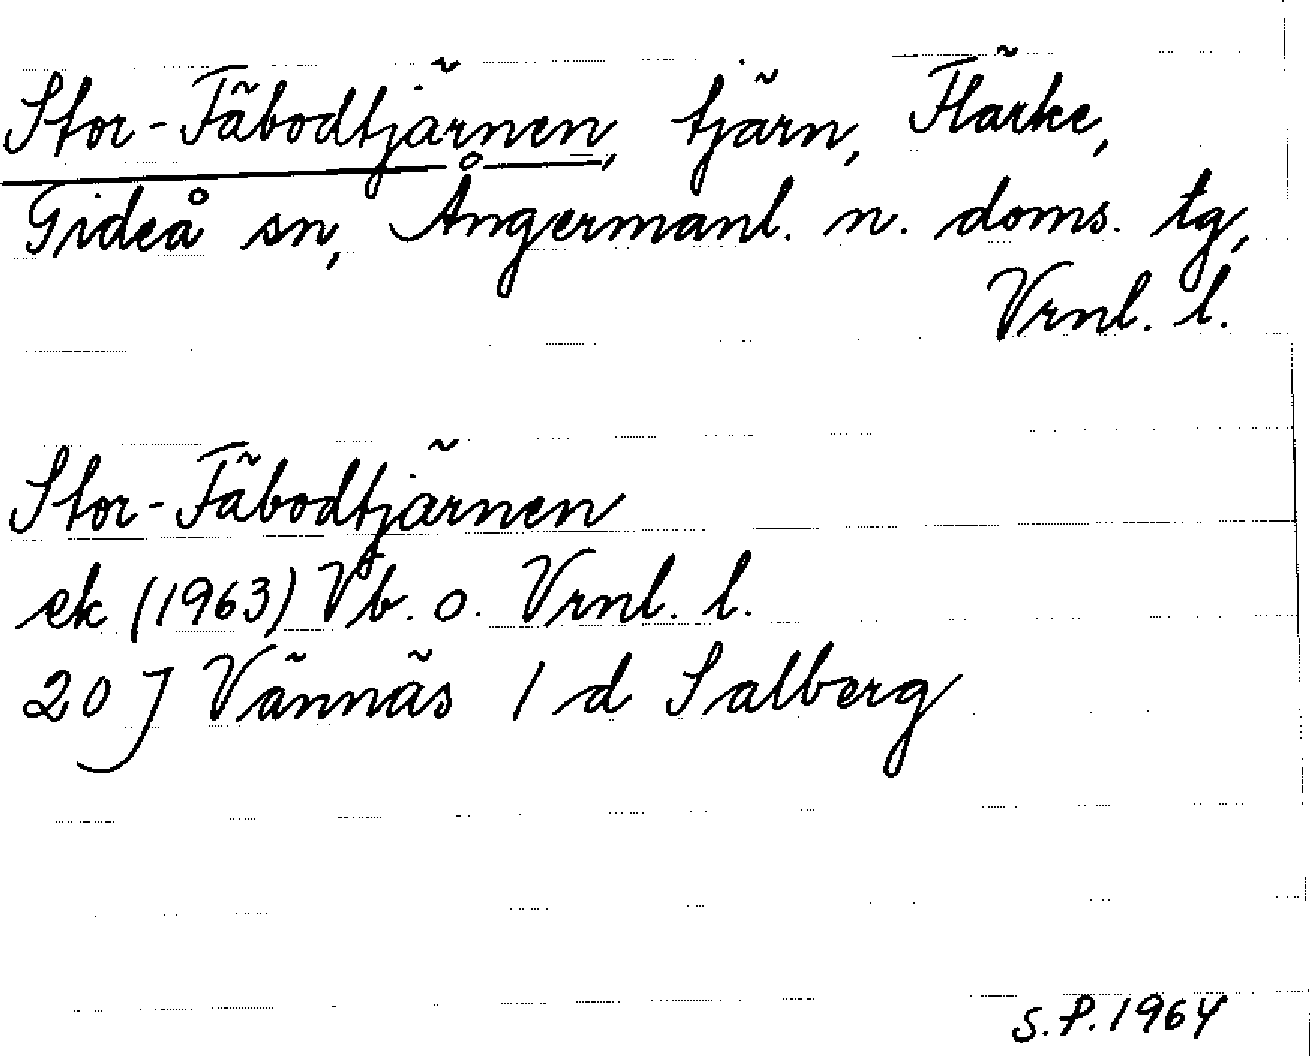 Stor-Fäbodtjärnen, tjärn, Flärke,
Gideå sn, Ångermanl. n. doms. tg,
Vrnl. l.
Stor-Fäbodtjärnen
ek (1963) Vb. o. Vrnl. l.
20 J Vännäs 1 d Salberg
S.P. 1964